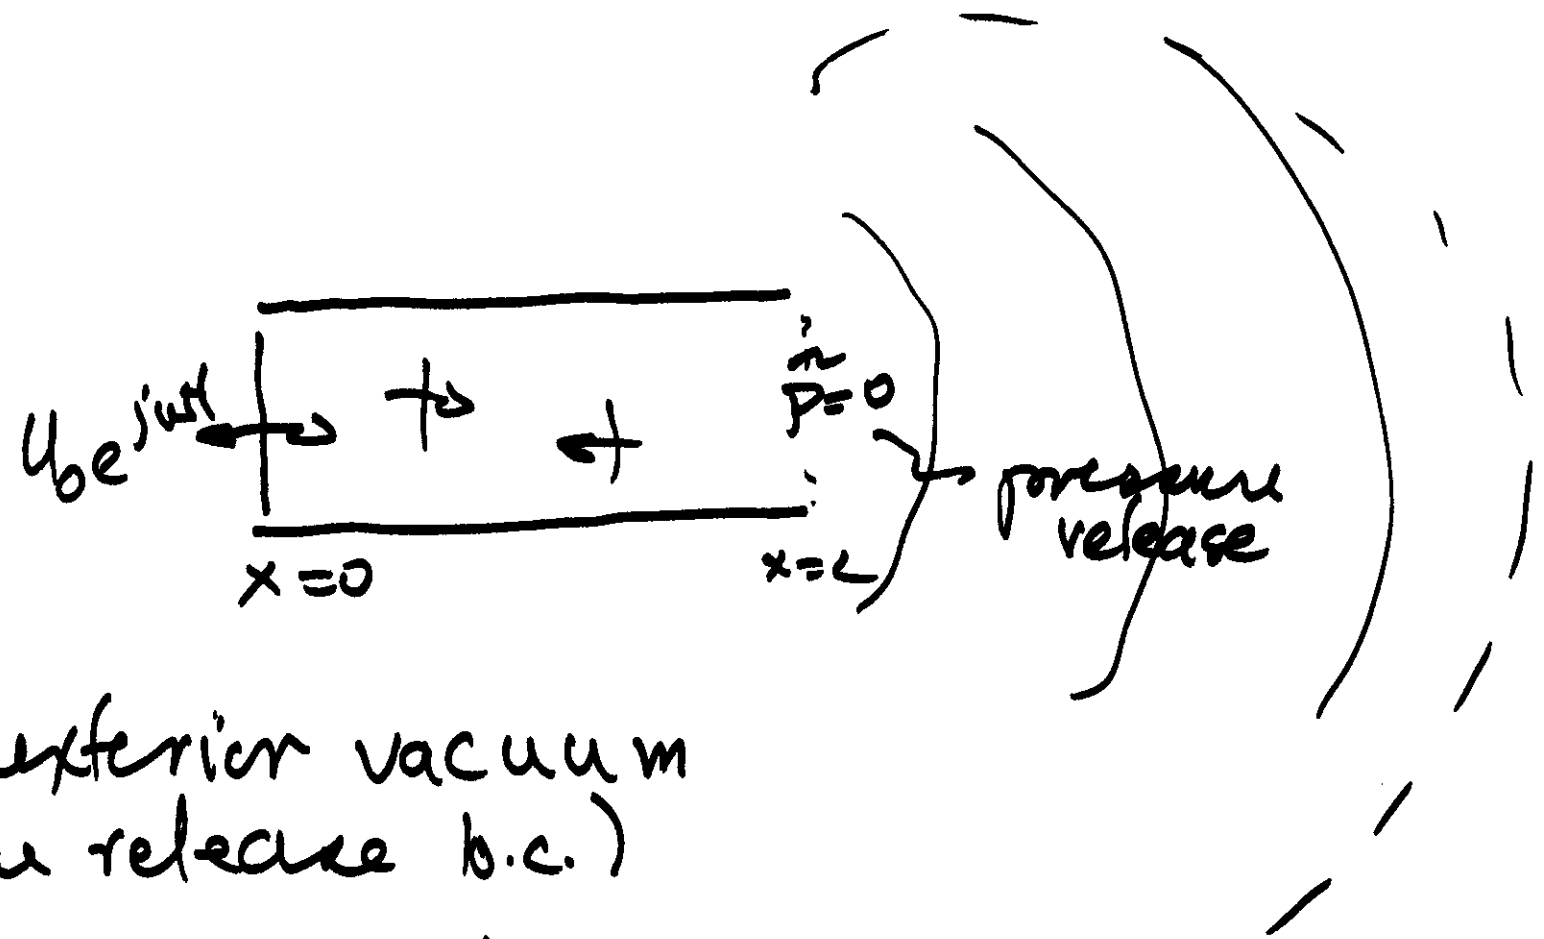 U₀e^jωt
p̃=0
pressure
release
x=0
x=L
exterior vacuum
release b.c.)